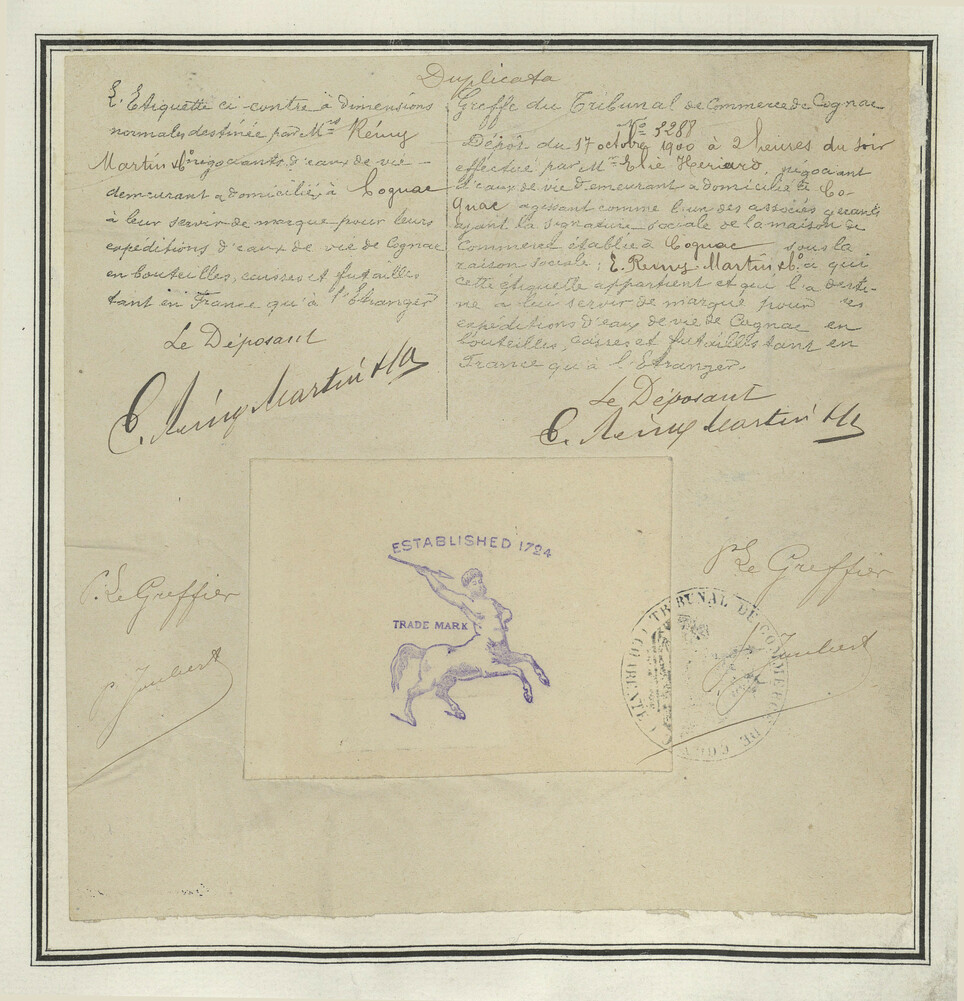 Duplicata
L'Etiquette ci-contre à dimensions
normales destinée par Mrs Rémy
Martin & Co négociants d'eaux de vie
demeurant & domiciliés à Cognac
à leur servir de marque pour leurs
expéditions d'eaux de vie de Cognac
en bouteilles, caisses et futailles
tant en France qu'à l'Etranger
Le Déposant
E. Rémy Martin & Co
Greffe du Tribunal de Commerce de Cognac
No 3288
Dépôt du 17 octobre 1900 à 2 heures du soir
effectué par Mr Elie Heriard, négociant
d'eaux de vie demeurant & domicilié à Co
gnac agissant comme l'un des associés gérants
ayant la signature sociale de la maison de
Commerce établie à Cognac sous la
raison sociale : E. Remy Martin & Co à qui
cette étiquette appartient et qui l'a desti-
née à leur servir de marque pour ses
expéditions d'eaux de vie de Cognac en
bouteilles, caisses et futailles tant en
France qu'à l'Etranger.
Le Déposant
E. Rémy Martin & Co
ESTABLISHED 1724
TRADE MARK
P. Le Greffier
P. Le Greffier
TRIBUNAL DE COMMERCE DE COGNAC (CHARENTE)